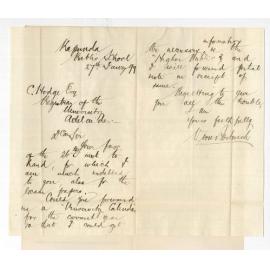 Kapunda
Public School
27th Jany
C. Hodge Esq
Registrar of the
University
Adelaide
Dear Sir
Your favor
of the 26th inst to
hand, for which I
am much indebted
to you also for the
papers.
Could you forward
me a University Calendar
for the current year
so that I could get
information
be necessary in the
"Higher Public" and
I will forward postal
note on receipt of
same.
Regretting to give
you all the trouble,
I am
Yours faithfully